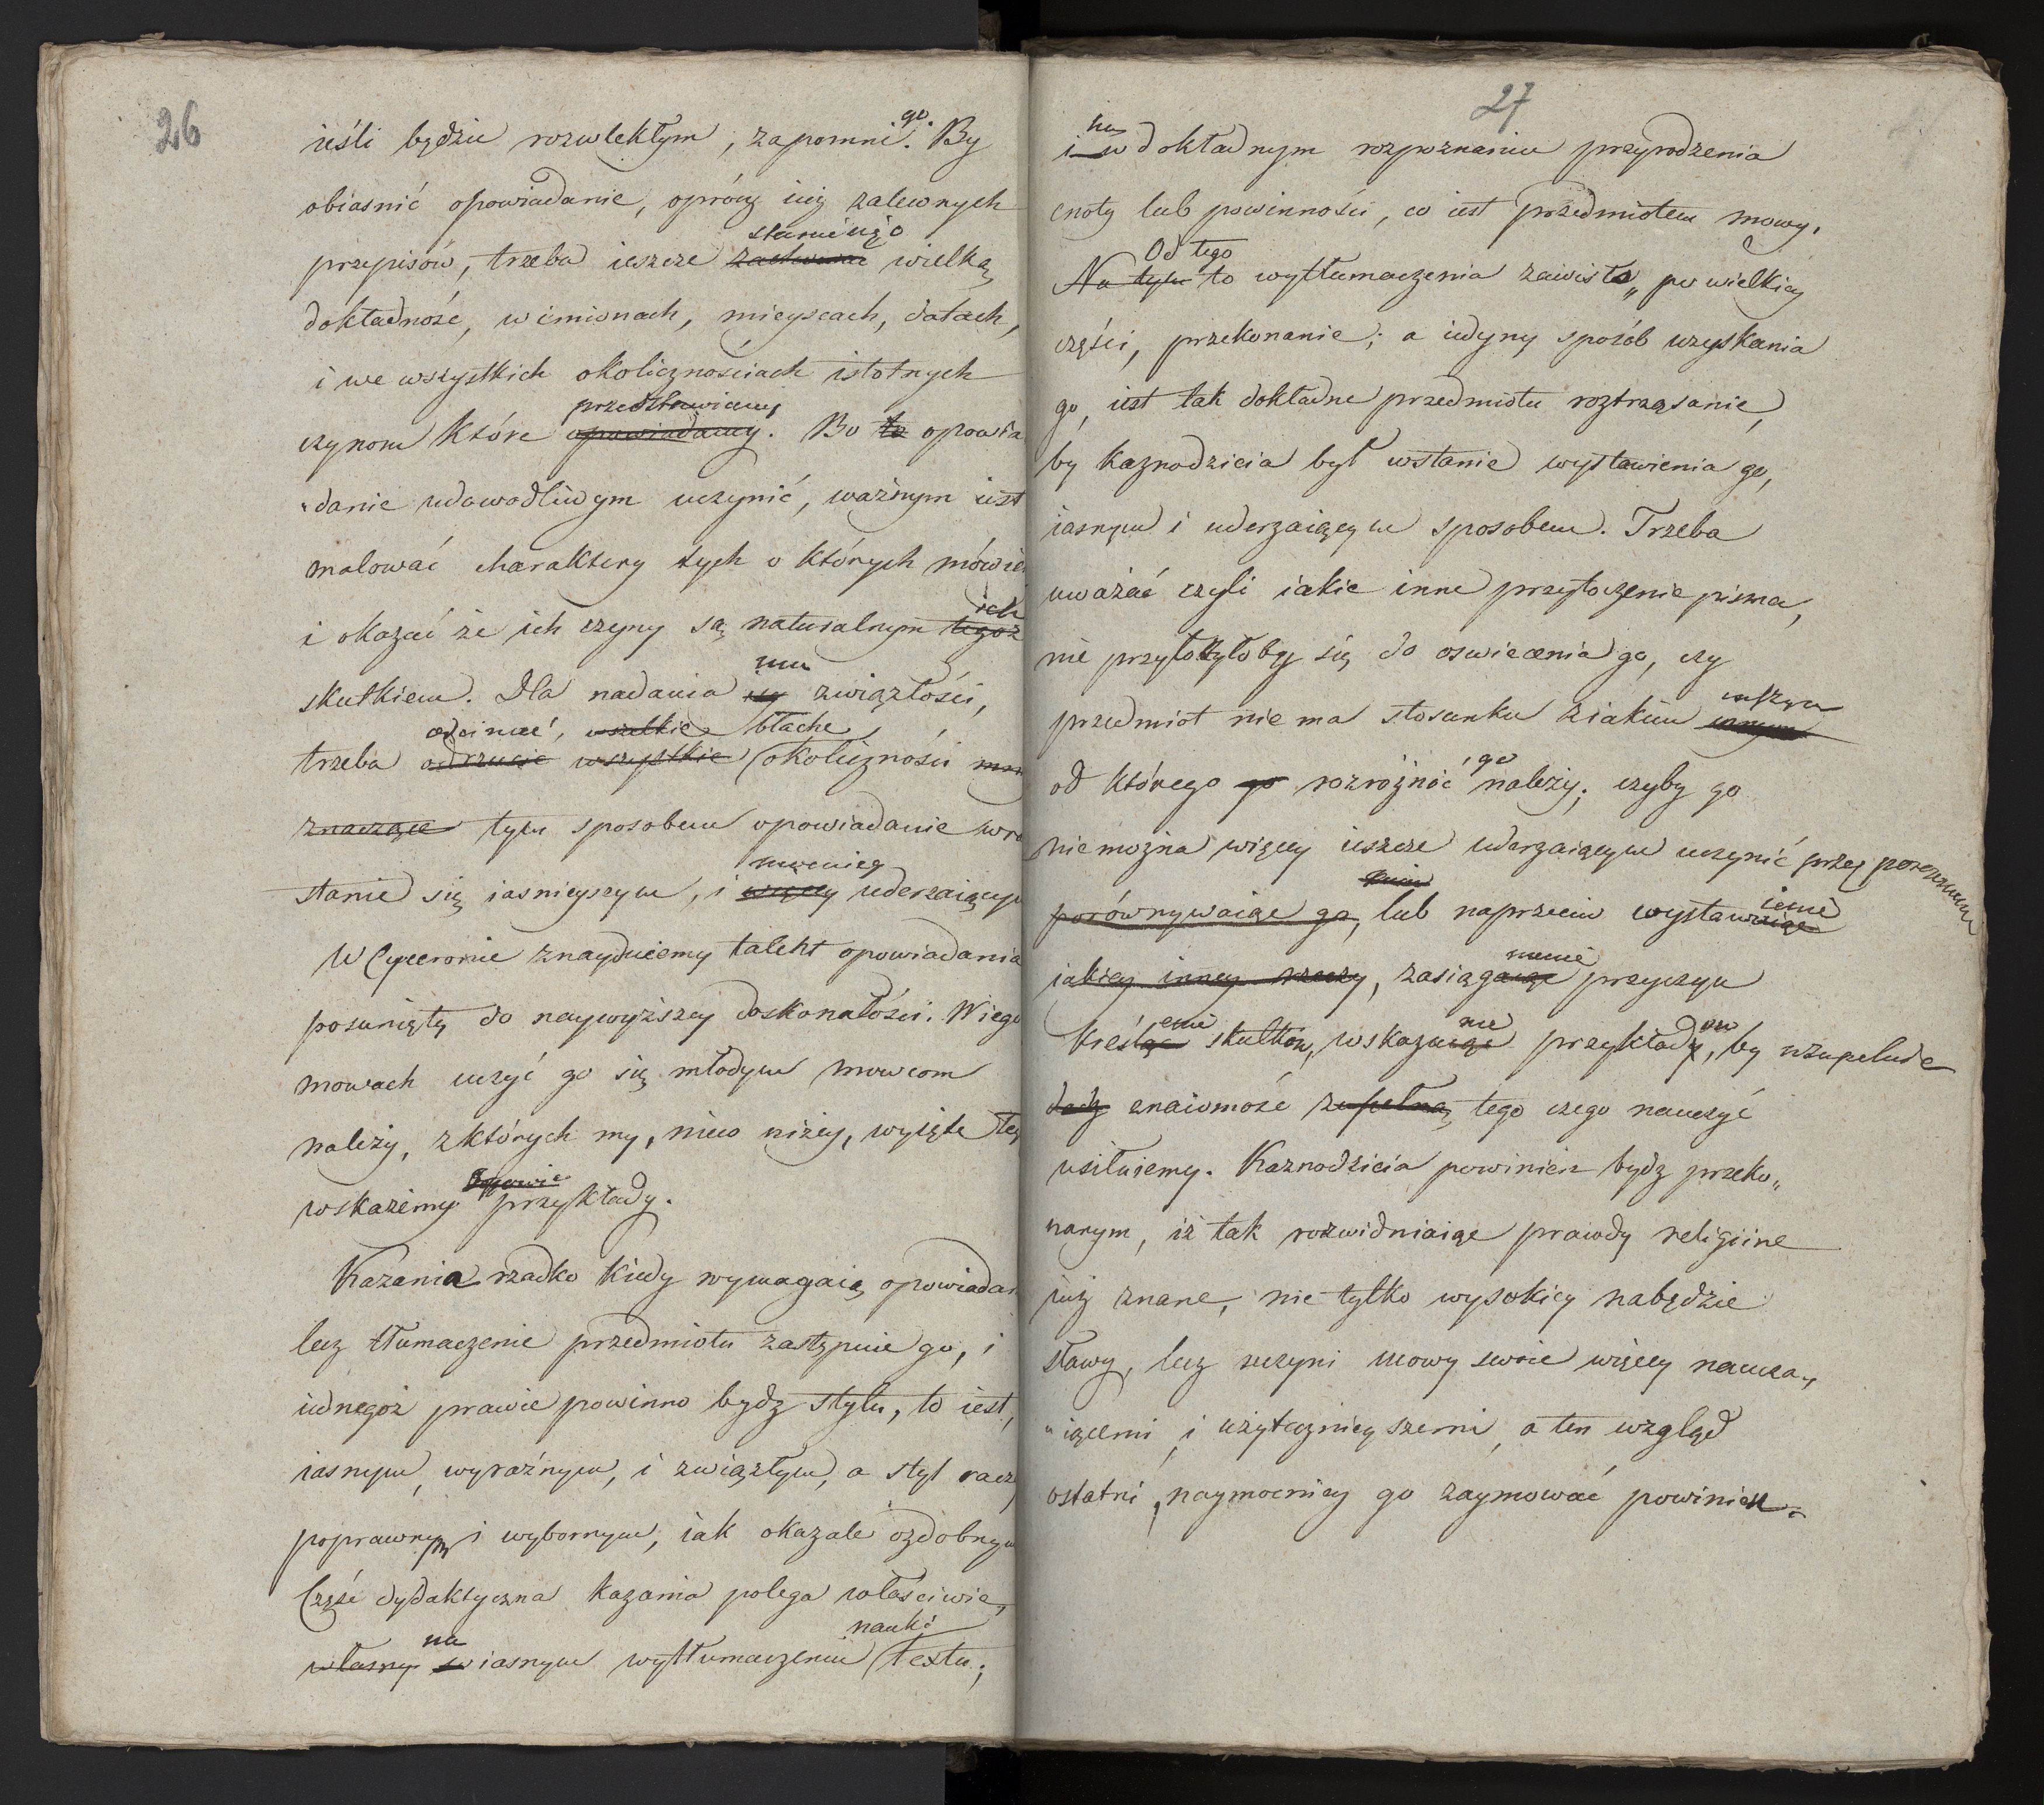 26
ieśli będzie rozwlekłym, zapomni go. By
obiasnić opowiadanie, oprócz iuż zalewnych
przepisów, trzeba ieszcze wielką
dokładność, w imionach, mieyscach, datach,
i we wszystkich okolicznościach istotnych
przedstawiemy
czynom które opowiadamy. Bo to opowia
danie udowodliwym uczynić, ważnym iest
malować charaktery tych o których mówie
ich
i okazać że ich czyny są naturalnym tegoż
mu
skutkiem. Dla nadania iey zwięzłości,
odcinać, wszelkie błache
trzeba odrzucić wszystkie okoliczności
znaczące tym sposobem opowiadanie
stanie się iasnieyszym, i więcey uderzaiącym
W Cyceronie znayduiemy talent opowiadania
posunięty do naywyższey doskonałości. W iego
mowach uczyć go się młodym mowcom
należy, z których my, nieco niżey, wyięte
wskażemy przykłady.
Kazania rzadko kiedy wymagaią opowiadan
lecz tłumaczenie przedmiotu zastępuie go, i
iednegoż prawie powinno bydz stylu, to iest,
iasnym, wyraźnym, i zwięzłym, a styl racze
poprawnym i wybornym, iak okazale ozdobnym
Część dydaktyczna kazania polega właściwie,
na nauki
własny w iasnym wytłumaczeniu textu;
27
na
i w dokładnym rozpoznaniu przyrodzenia
cnoty lub powinności, co iest przedmiotem mowy.
Od tego
Na tym to wytłumaczenia zawisło, po wielkiey
części, przekonanie; a iedyny sposób uzyskania
go, iest tak dokładne przedmiotu roztrząsanie,
by kaznodzieia był wstanie wystawienia go,
iasnym i uderzaiącym sposobem. Trzeba
uważać czyli iakie inne przytoczenie pisma,
nie przyłożyłoby się do oswiecenia go, czy
przedmiot nie ma stosunku z iakim
go
od którego go rozróżnić należy; czyby go
nie można więcey ieszcze uderzaiącym uczynić przez porownanie
porównywaiąc go, lub naprzeciw wystawienie
iakiey inney rzeczy, zasiąganie przyczyn
kreślenie skutków, wskazanie przykładów, by zupełnie
dadz znaiomość zupełną tego czego nauczyć
usiłuiemy. Kaznodzieia powinien bydz przeko„
nanym, iż tak rozwidniaiąc prawdy religiine
iuż znane, nie tylko wysokiey nabędzie
sławy, lecz uczyni mowy swoie więcey naucza„
„iącemi i użytecznieyszemi, a ten wzgląd
ostatni, naymocniey go zaymować powinien.